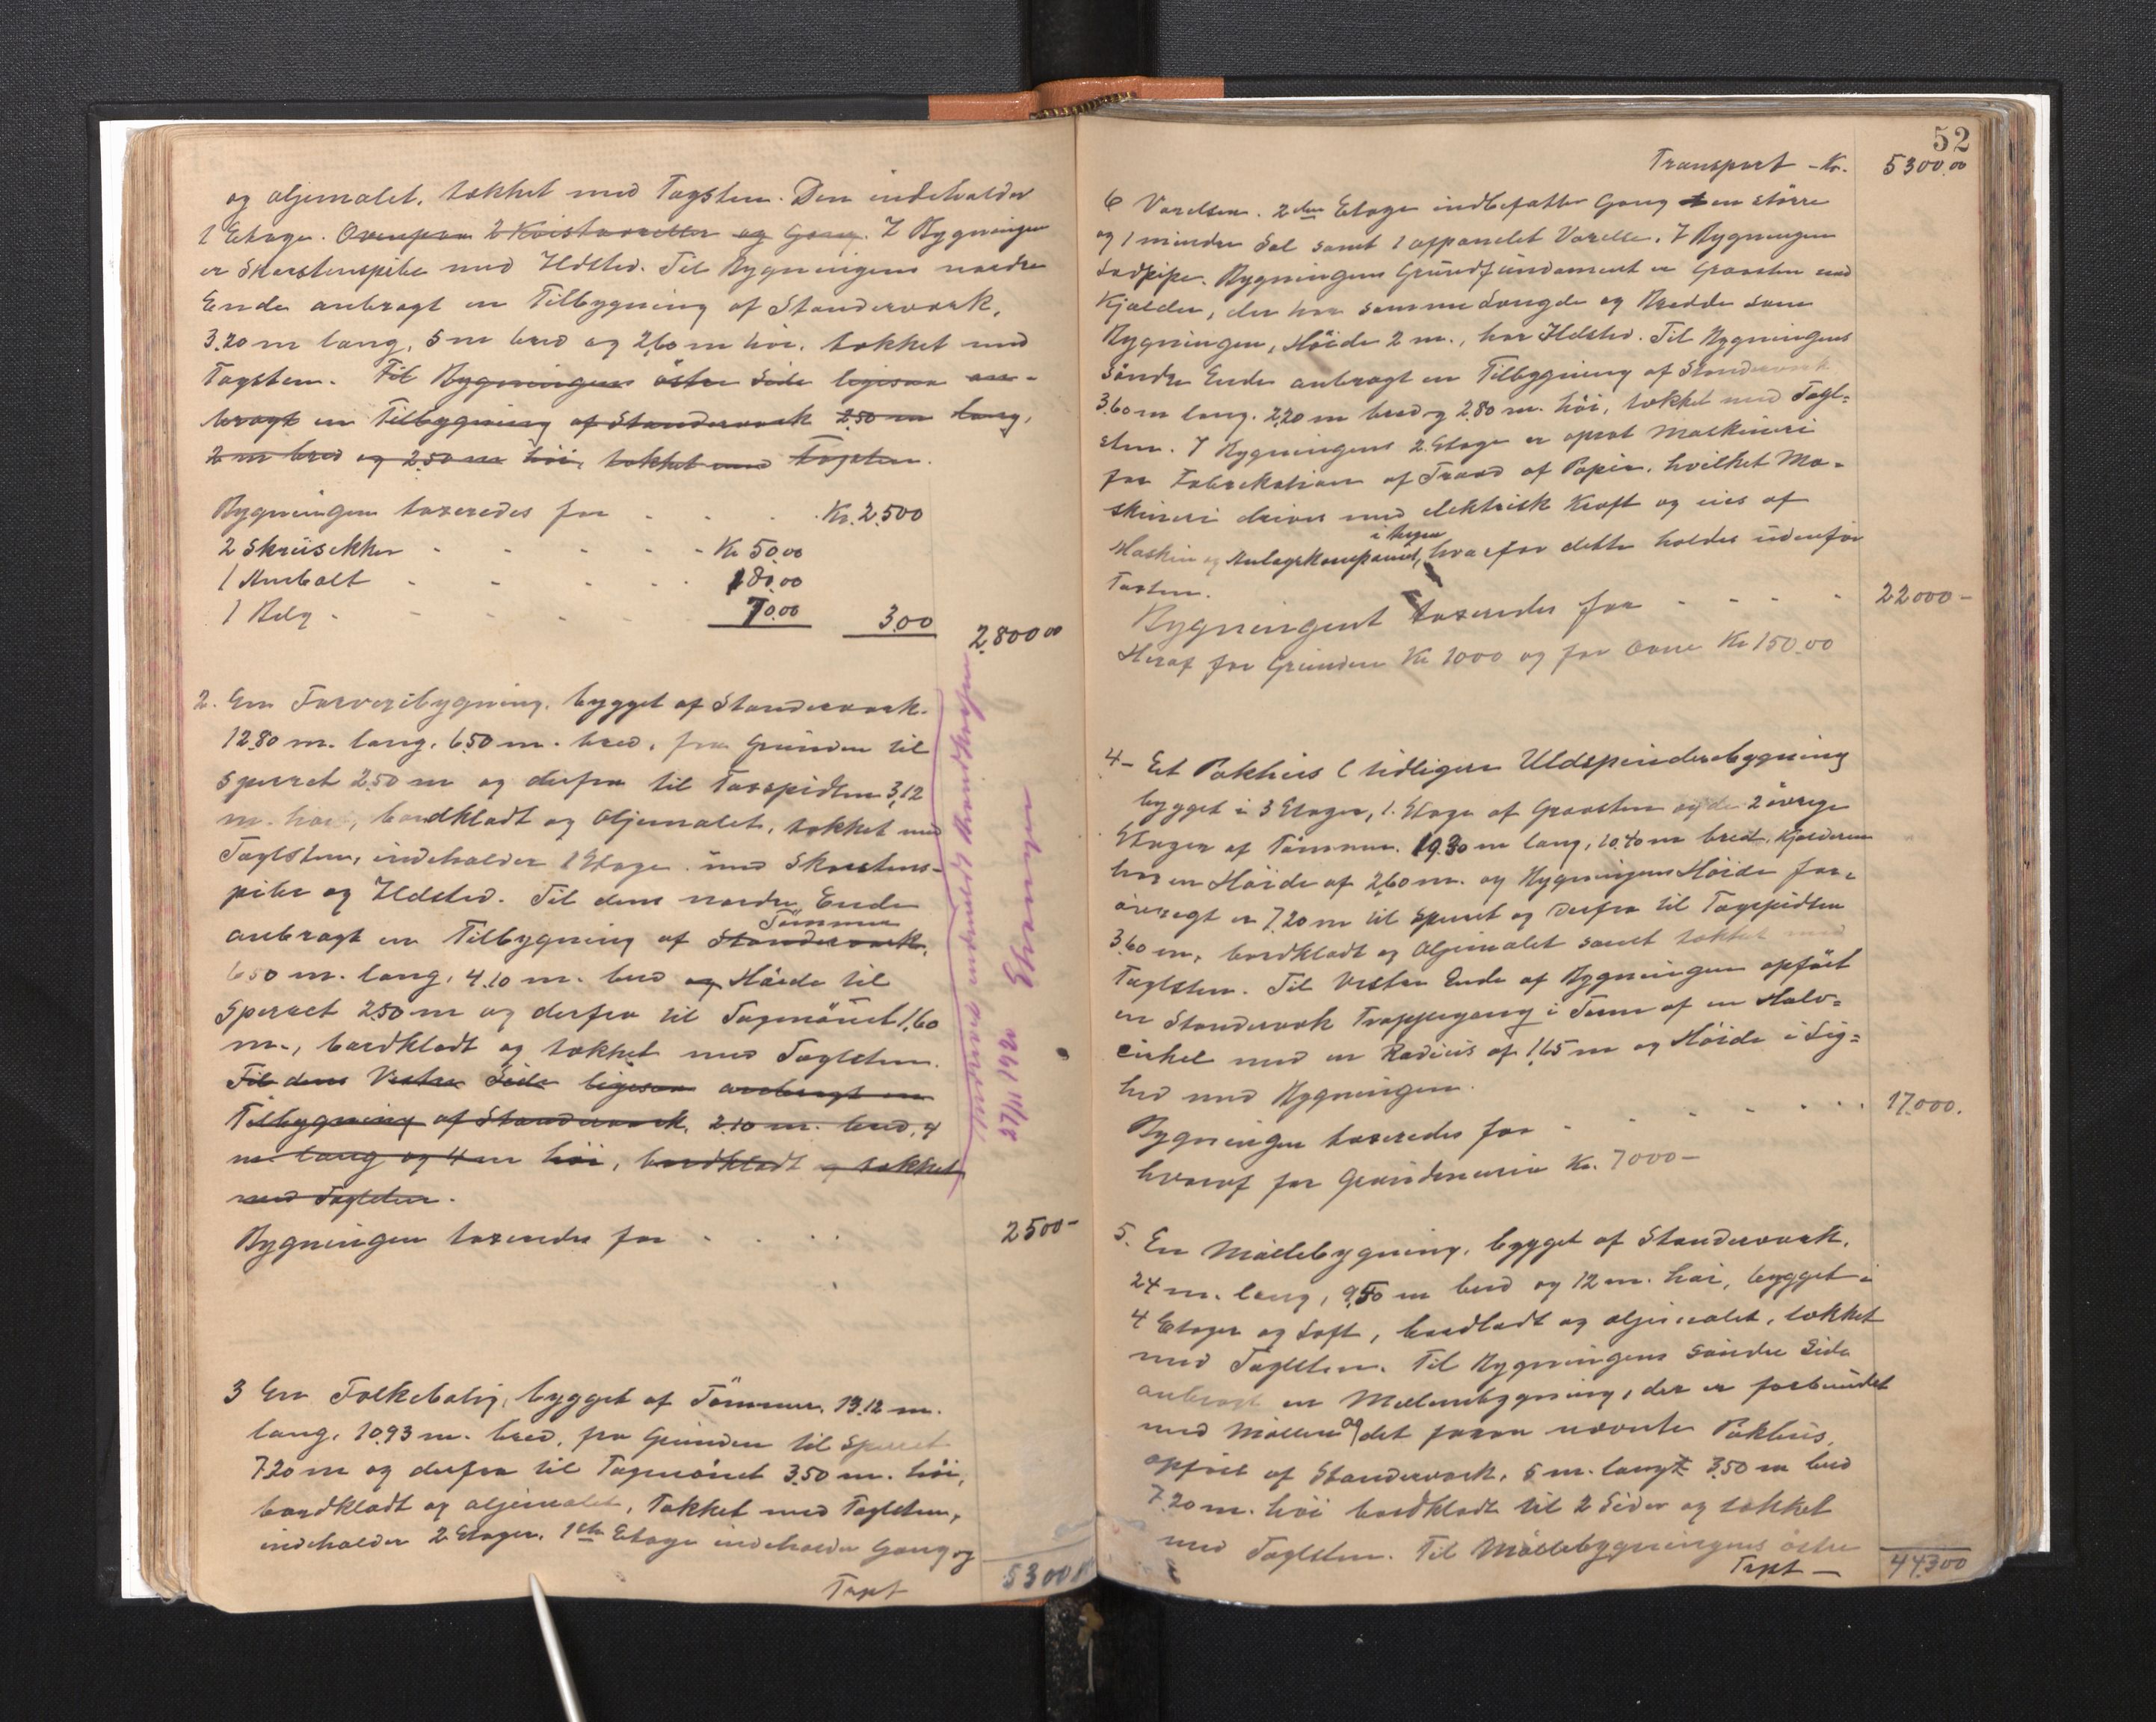 og oljemalet, tækket med Tagsten. Den indeholder
1 Etage. Ovenpaa 2 Kvistværelser og Gang. I Bygningen
er Skorstenspibe med Ildsted. Til Bygningens nordre
Ende anbragt en Tilbygning af Standerværk,
3.20 m lang, 5 m bred og 2.60 m høi, tækket med
Tagsten. Til Bygningens østre Side ligesaa an-
bragt en Tilbygning af Standerværk 2.50 m lang,
2 m bred og 2.50 m høi, tækket med Tagsten.
Bygningen taxeredes for . . . Kr. 2.500
2 Skruestikker - - - - - Kr 50.00
1 Ambolt - - - - 180.00
1 Belg - - - - - 70.00 300
2.800 00
2. En Farveribygning, bygget af Standerværk.
12.80 m. lang, 6.50 m. bred, fra Grunden til
Sperret 2.50 m og derfra til Tagspidsen 3,12
m. høi, bordklædt og Oljemalet, tækket med
Taglsten, indeholder 1 Etage med Skorstens-
pibe og Ildsted. Til dens nordre Ende
Tømmer
anbragt en Tilbygning af Standerværk,
6.50 m. lang, 4.10 m. bred og Høide til
Sperret 2.50 m og derfra til Tagmønet 1,60
m., bordklædt og tækket med Taglsten.
Til dens Vestre Side ligesaa anbragt en
Tilbygning af Standerværk, 2.10 m. bred, 4
m. lang og 4 m høi, bordklædt og tækket
med Taglsten.
Bygningen taxeredes for . . . . 2500-
27/11 1920
3 En Folkebolig, bygget af Tømmer, 13.12 m.
lang, 10.93 m. bred, fra Grunden til Sperret
7.20 m og derfra til Tagmønet 3.50 m. høi,
bordklædt og oljemalet, Tækket med Taglsten,
indeholder 2 Etager. 1ste Etage indeholder Gang og
Trpt 5300
52
Transport - Kr. 5300.00
6 Værelser. 2den Etage indbefatter Gang en større
og 1 mindre Sal samt 1 oppanelet Værelse. I Bygningen
Lodpipe. Bygningens Grundfundament er Graasten med
Kjælder, der har samme Længde og Bredde som
Bygningen, Høide 2 m., har Ildsted. Til Bygningens
Søndre Ende anbragt en Tilbygning af Standerværk
3.60 m lang. 2.20 m bred og 2.80 m. høi, tækket med Tagl-
sten. I Bygningens 2. Etage er opsat Maskineri
for Fabrikation af Traad af Papir, hvilket Ma-
skineri drives med elektrisk Kraft og eies af
i Bergen
Maskin og Anlægskompaniet, hvorfor dette holdes udenfor
Taxten.
Bygningen taxeredes for - - - - 22000-
Heraf for Grunden Kr 1000 og for Ovne Kr 150.00
4- Et Pakhus (tidligere Uldspinderibygning
bygget i 3 Etager, 1. Etage af Graasten og de 2 øvrige
Etager af Tømmer. 19.30 m lang, 10.40 m bred, Kjælderen
har en Høide af 2,60 m. og Bygningens Høide for-
øvrigt er 7.20 m til Sperret og derfra til Tagspidsen
3.60 m, bordklædt og Oljemalet samt tækket med
Taglsten. Til Vestre Ende af Bygningen opført
en Standerværk Trappegang i Form af en Halv-
cirkel med en Radius af 1,65 m og Høide i Lig-
hed med Bygningen.
Bygningen taxeredes for - - - - 17.000.
hvoraf for Grundmurin Kr. 7000-
5. En Møllebygning, bygget af Standerværk,
24 m. lang, 9.50 m bred og 12 m. høi, bygget i
4 Etager og Loft, bordklædt og oljemalet, tækket
med Taglsten. Til Bygningens Søndre Side
anbragt en Mellembygning, der er forbundet
med Møllen og det foran nævnte Pakhus,
opført af Standerværk, 5 m. lang 3.50 m bred
7.20 m. høi bordklædt til 2 Sider og tækket
med Taglsten. Til Møllebygningens østre
Trpt - 44300